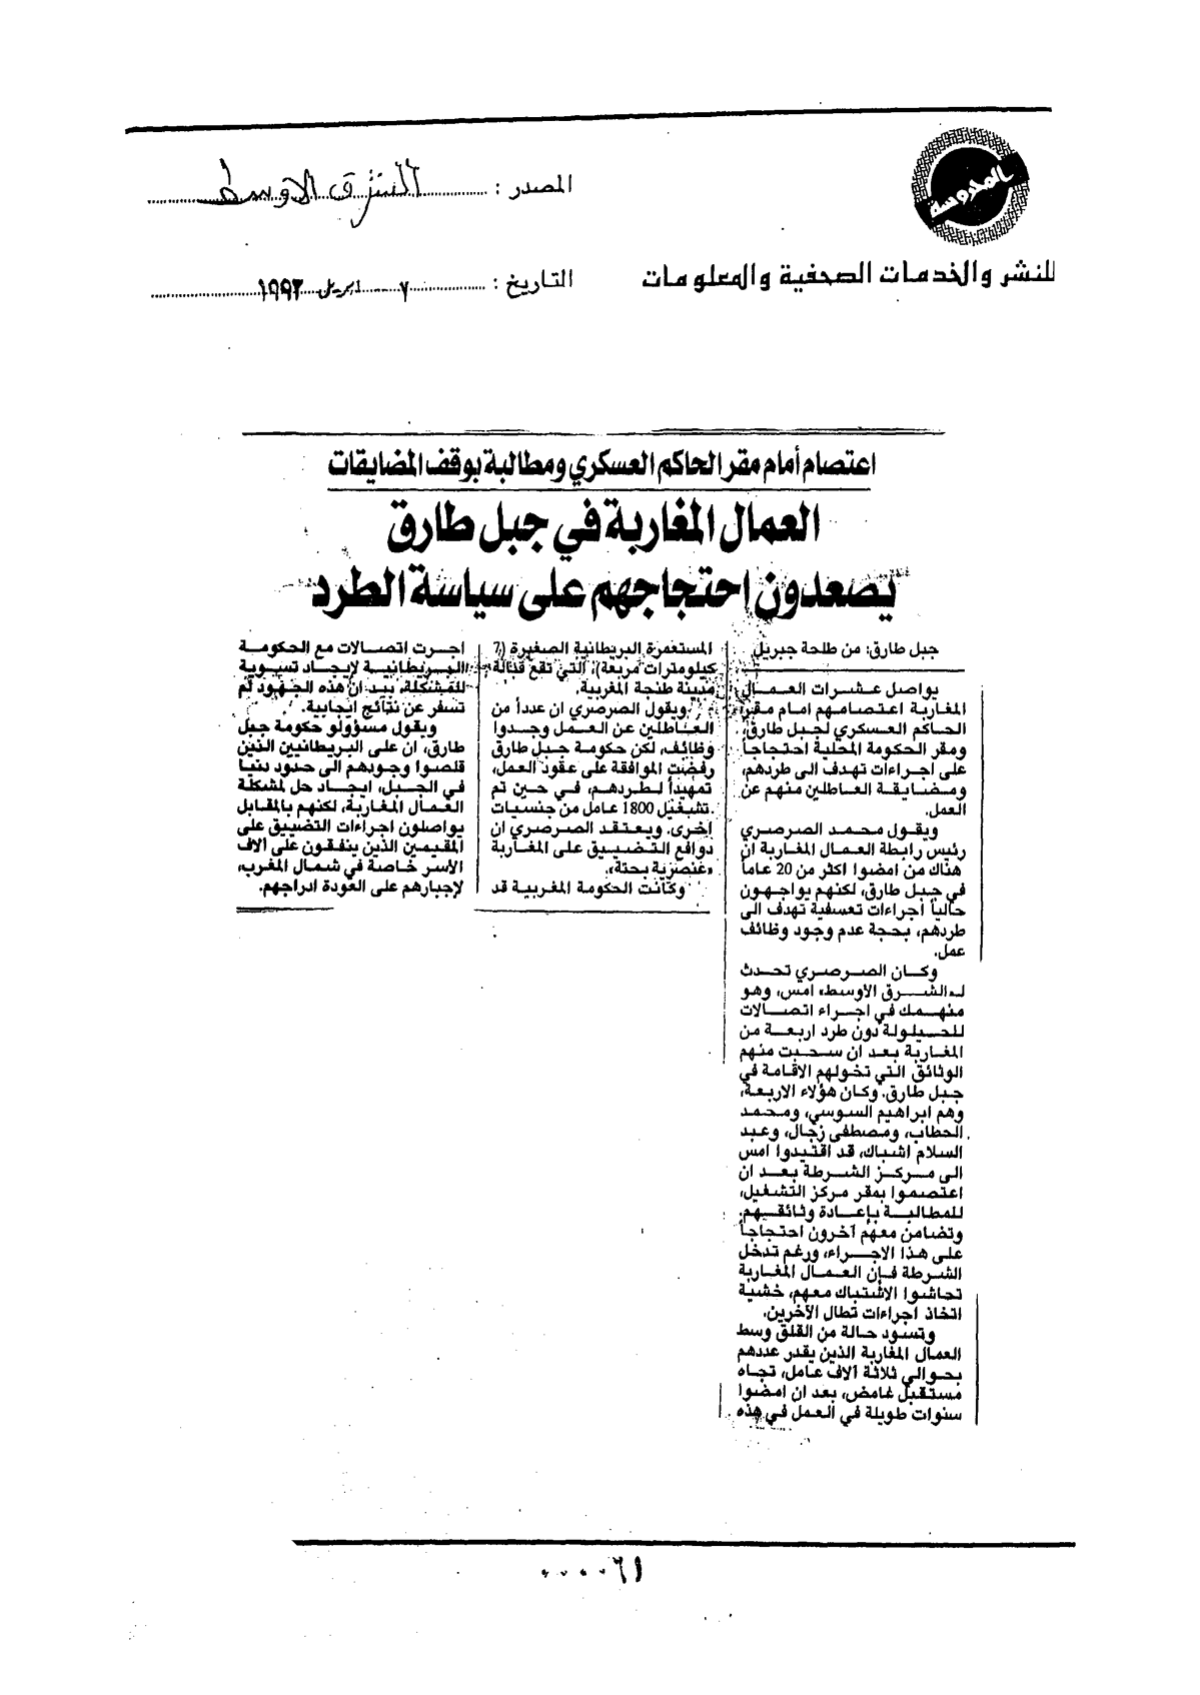 المحروسة
للنشر والخدمات الصحفية والمعلومات
المصدر : الشرق الاوسط
التاريخ : ٧ ابريل ١٩٩٣
اعتصام أمام مقر الحاكم العسكري ومطالبة بوقف المضايقات
العمال المغاربة في جبل طارق
يصعدون احتجاجهم على سياسة الطرد
جبل طارق: من طلحة جبريل
يواصل عشرات العمال
المغاربة اعتصامهم امام مقر
الحاكم العسكري لجبل طارق،
ومقر الحكومة المحلية احتجاجاً
على اجراءات تهدف الى طردهم،
ومضايقة العاطلين منهم عن
العمل.
ويقول محمد الصرصري
رئيس رابطة العمال المغاربة ان
هناك من امضوا اكثر من 20 عاماً
في جبل طارق، لكنهم يواجهون
حالياً اجراءات تعسفية تهدف الى
طردهم، بحجة عدم وجود وظائف
عمل.
وكان الصرصري تحدث
لـ«الشرق الاوسط» امس، وهو
منهمك في اجراء اتصالات
للحيلولة دون طرد اربعة من
المغاربة بعد ان سحبت منهم
الوثائق التي تخولهم الاقامة في
جبل طارق. وكان هؤلاء الاربعة،
وهم ابراهيم السوسي، ومحمد
الحطاب، ومصطفى زجال، وعبد
السلام اشباك، قد اقتيدوا امس
الى مركز الشرطة بعد ان
اعتصموا بمقر مركز التشغيل،
للمطالبة بإعادة وثائقهم،
وتضامن معهم آخرون احتجاجاً
على هذا الاجراء، ورغم تدخل
الشرطة فإن العمال المغاربة
تحاشوا الاشتباك معهم، خشية
اتخاذ اجراءات تطال الآخرين.
وتسود حالة من القلق وسط
العمال المغاربة الذين يقدر عددهم
بحوالي ثلاثة آلاف عامل، تجاه
مستقبل غامض، بعد ان امضوا
سنوات طويلة في العمل في هذه
المستعمرة البريطانية الصغيرة (7
كيلومترات مربعة)، التي تقع قبالة
مدينة طنجة المغربية.
ويقول الصرصري ان عدداً من
العاطلين عن العمل وجدوا
وظائف، لكن حكومة جبل طارق
رفضت الموافقة على عقود العمل،
تمهيداً لطردهم، في حين تم
تشغيل 1800 عامل من جنسيات
اخرى. ويعتقد الصرصري ان
دوافع التضييق على المغاربة
«عنصرية بحتة».
وكانت الحكومة المغربية قد
اجرت اتصالات مع الحكومة
البريطانية لإيجاد تسوية
للمشكلة، بيد ان هذه الجهود لم
تسفر عن نتائج ايجابية.
ويقول مسؤولو حكومة جبل
طارق، ان على البريطانيين الذين
قلصوا وجودهم الى حدود دنيا
في الجبل، ايجاد حل لمشكلة
العمال المغاربة، لكنهم بالمقابل
يواصلون اجراءات التضييق على
المقيمين الذين ينفقون على آلاف
الأسر خاصة في شمال المغرب،
لإجبارهم على العودة ادراجهم.
٠٠٠٠٦١